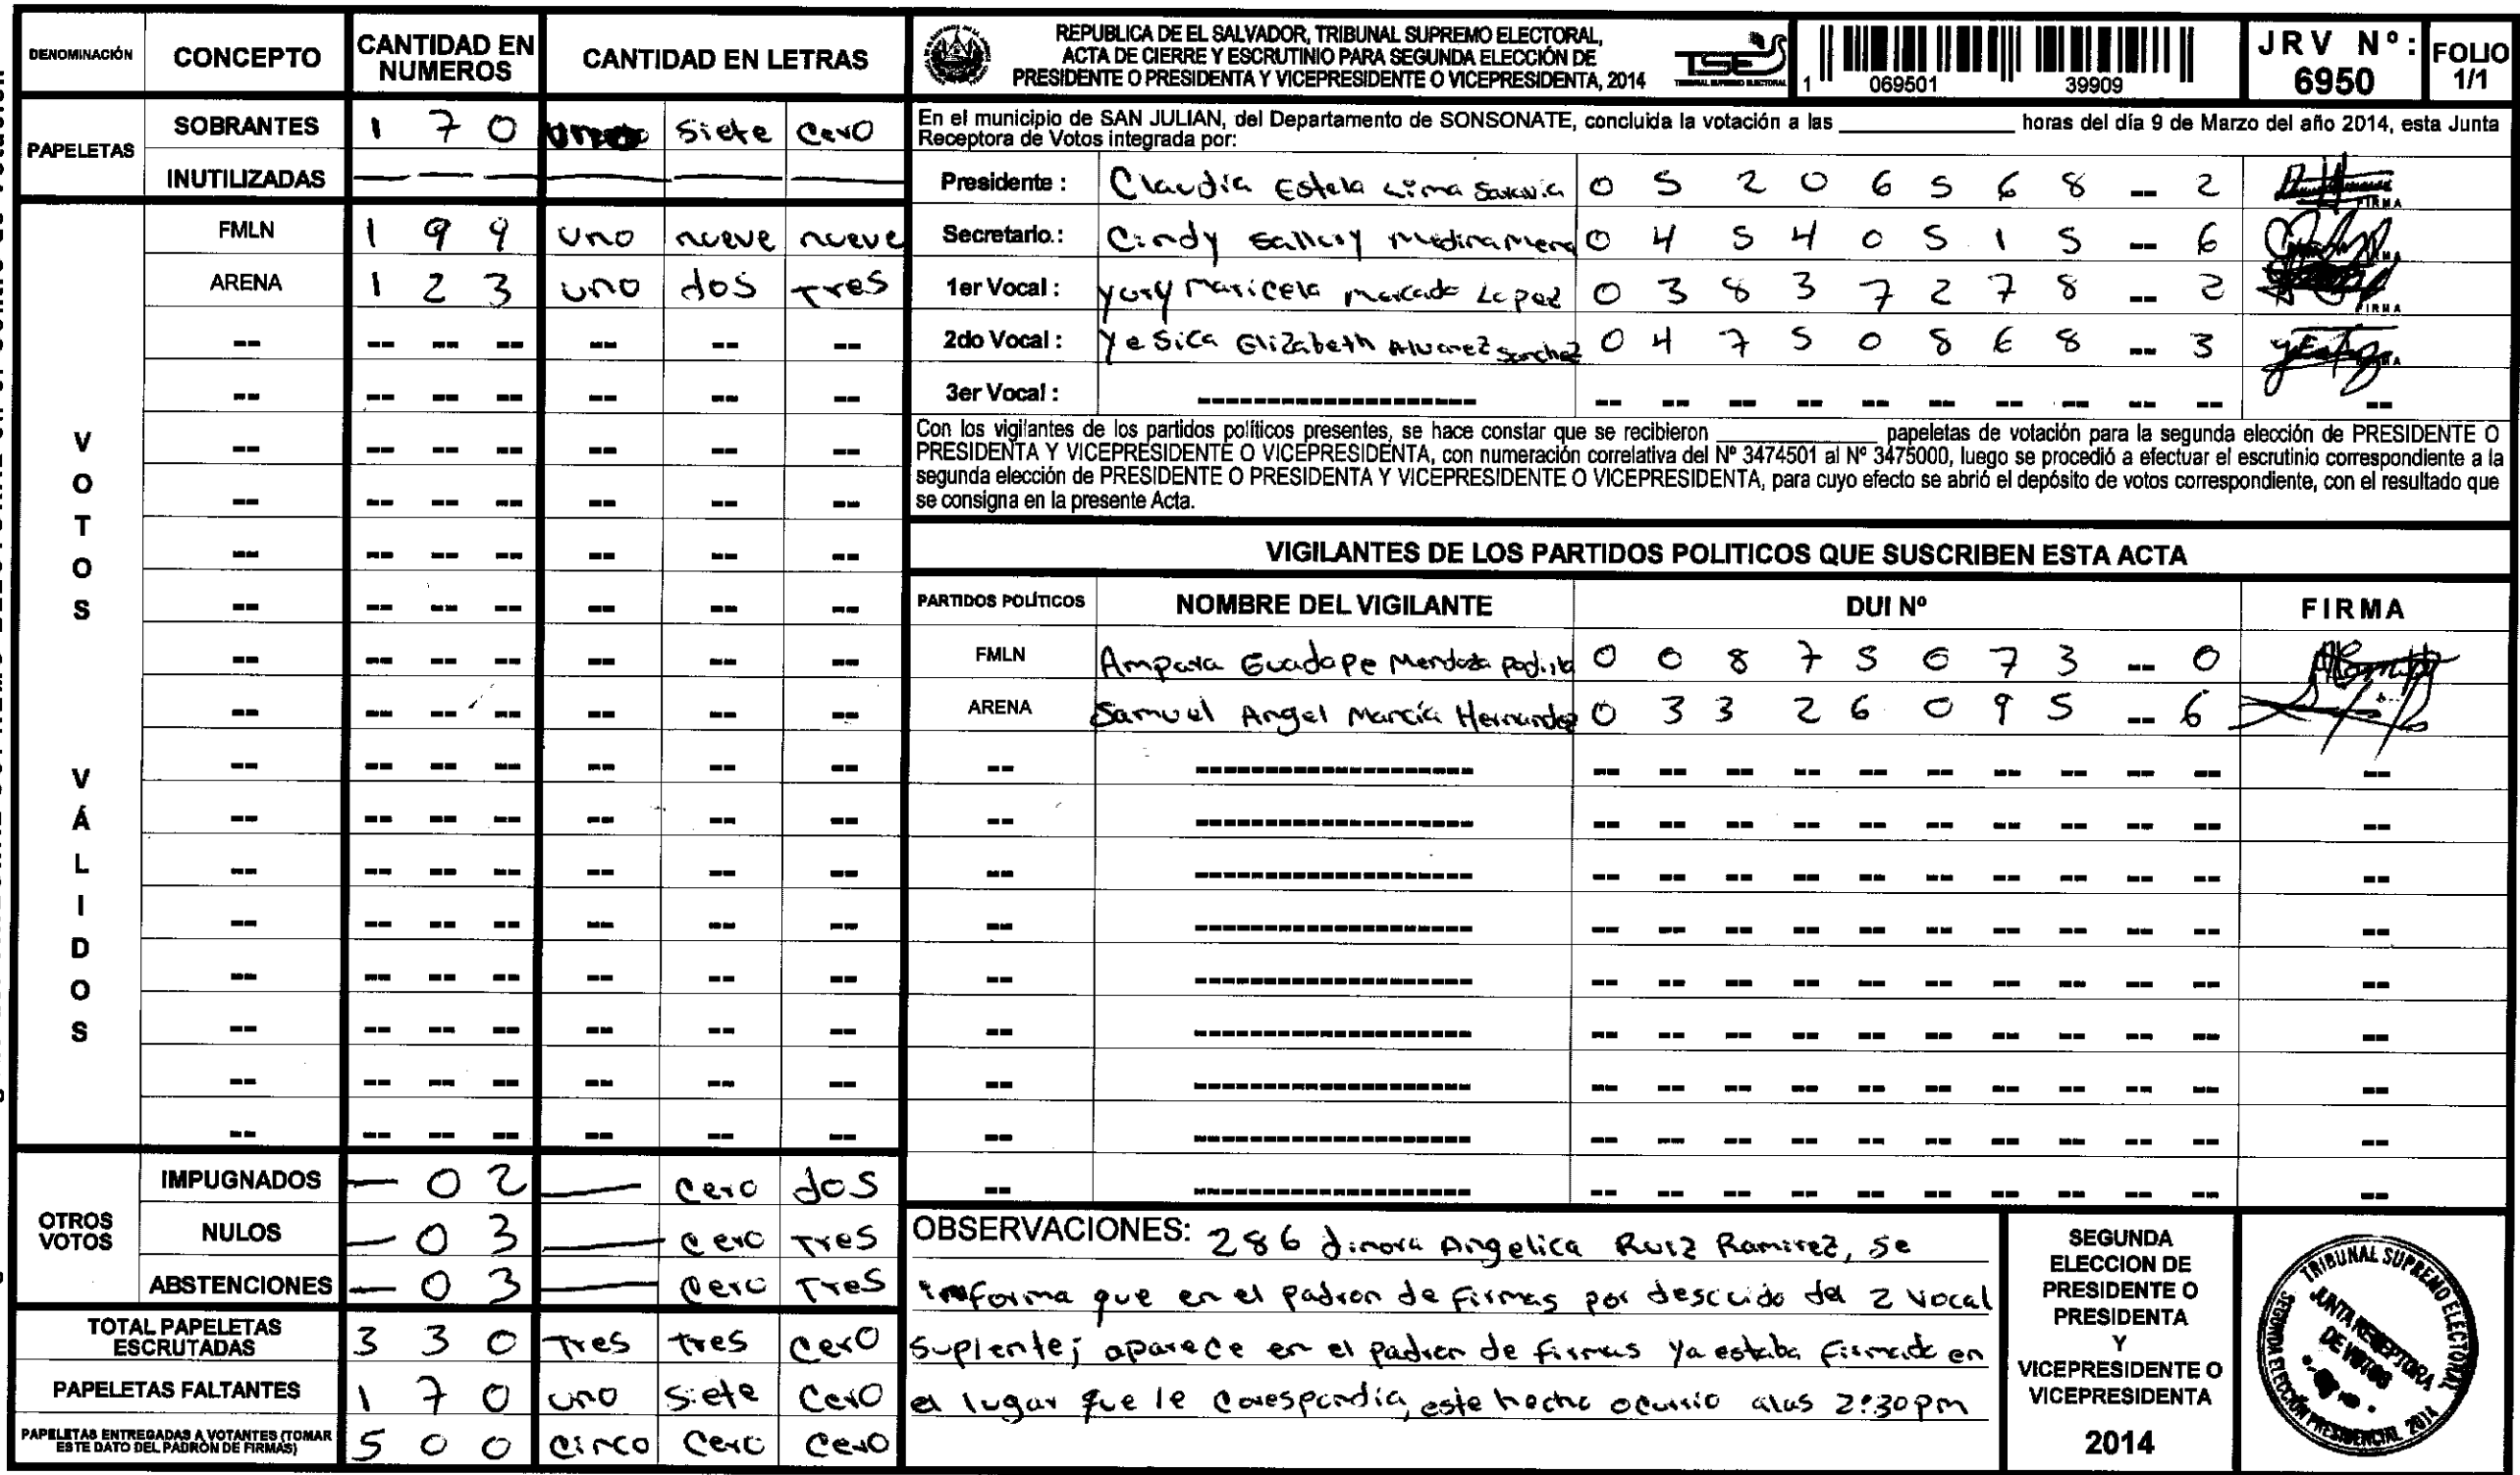 DENOMINACIÓN CONCEPTO CANTIDAD EN NUMEROS CANTIDAD EN LETRAS
PAPELETAS
SOBRANTES 1 7 0 uno siete cero
INUTILIZADAS — — — — — —
VOTOS VÁLIDOS
FMLN 1 9 9 uno nueve nueve
ARENA 1 2 3 uno dos tres
OTROS VOTOS
IMPUGNADOS — 0 2 — cero dos
NULOS — 0 3 — cero tres
ABSTENCIONES — 0 3 — cero tres
TOTAL PAPELETAS ESCRUTADAS 3 3 0 tres tres cero
PAPELETAS FALTANTES 1 7 0 uno siete cero
PAPELETAS ENTREGADAS A VOTANTES (TOMAR ESTE DATO DEL PADRÓN DE FIRMAS) 5 0 0 cinco cero cero
REPUBLICA DE EL SALVADOR, TRIBUNAL SUPREMO ELECTORAL,
ACTA DE CIERRE Y ESCRUTINIO PARA SEGUNDA ELECCIÓN DE
PRESIDENTE O PRESIDENTA Y VICEPRESIDENTE O VICEPRESIDENTA, 2014
TSE
TRIBUNAL SUPREMO ELECTORAL
1 069501 39909
JRV Nº: 6950
FOLIO 1/1
En el municipio de SAN JULIAN, del Departamento de SONSONATE, concluida la votación a las ____ horas del día 9 de Marzo del año 2014, esta Junta
Receptora de Votos integrada por:
Presidente : Claudia Estela Lima 0 5 2 0 6 5 6 8 -- 2 FIRMA
Secretario.: Cindy Medina 0 4 5 4 0 5 1 5 -- 6
1er Vocal : Yury Maricela Mercado Lopez 0 3 8 3 7 2 7 8 -- 2 FIRMA
2do Vocal : Yesica Elizabeth Alvarez Sanchez 0 4 7 5 0 8 6 8 -- 3
3er Vocal : --
Con los vigilantes de los partidos políticos presentes, se hace constar que se recibieron ____ papeletas de votación para la segunda elección de PRESIDENTE O
PRESIDENTA Y VICEPRESIDENTE O VICEPRESIDENTA, con numeración correlativa del Nº 3474501 al Nº 3475000, luego se procedió a efectuar el escrutinio correspondiente a la
segunda elección de PRESIDENTE O PRESIDENTA Y VICEPRESIDENTE O VICEPRESIDENTA, para cuyo efecto se abrió el depósito de votos correspondiente, con el resultado que
se consigna en la presente Acta.
VIGILANTES DE LOS PARTIDOS POLITICOS QUE SUSCRIBEN ESTA ACTA
PARTIDOS POLÍTICOS NOMBRE DEL VIGILANTE DUI Nº FIRMA
FMLN Ampara Guadape Mendoza 0 0 8 7 5 6 7 3 -- 0
ARENA Samuel Angel Marcía Hernandez 0 3 3 2 6 0 9 5 -- 6
OBSERVACIONES: 286 dinora Angelica Ruiz Ramirez, se
informa que en el padron de firmas por descuido del 2 vocal
suplente; aparece en el padron de firmas ya estaba firmado en
el lugar que le corespondia, este hecho ocurrio alas 2:30pm
SEGUNDA
ELECCION DE
PRESIDENTE O
PRESIDENTA
Y
VICEPRESIDENTE O
VICEPRESIDENTA
2014
TRIBUNAL SUPREMO ELECTORAL
JUNTA RECEPTORA
DE VOTOS
SEGUNDA ELECCIÓN PRESIDENCIAL 2014